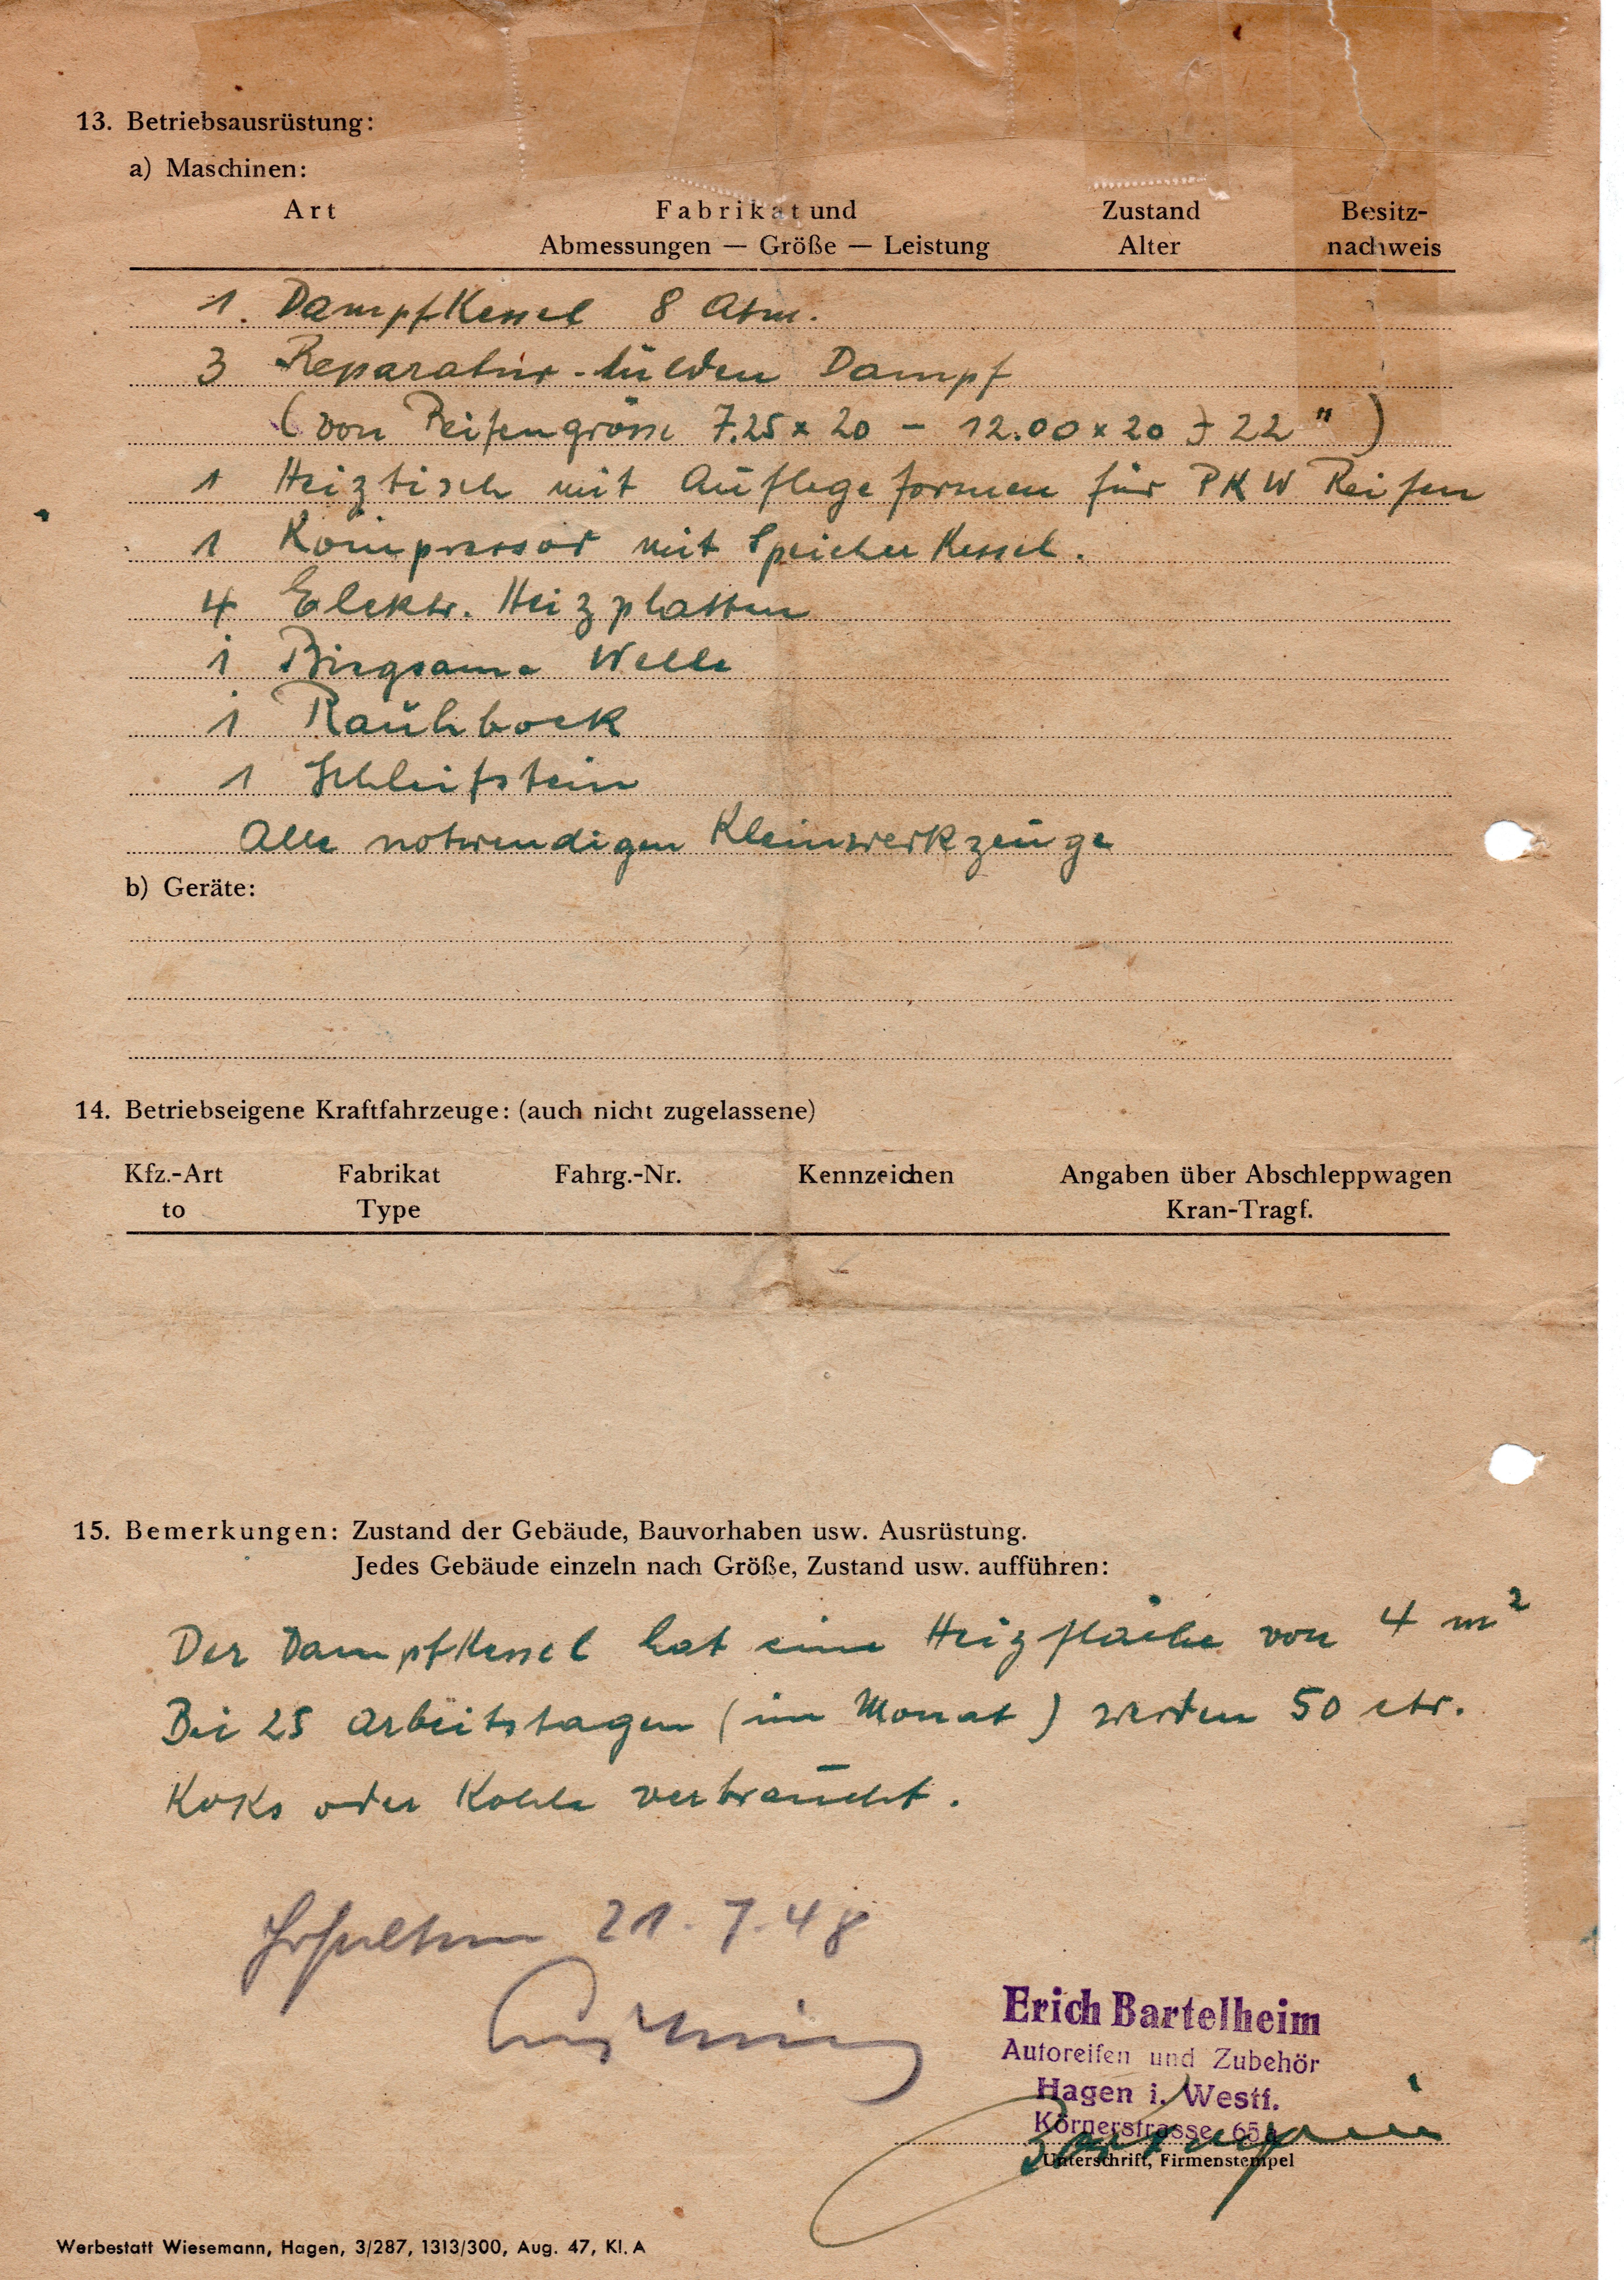 13. Betriebsausrüstung:
a) Maschinen:
Art Fabrikat und Zustand Besitz-
Abmessungen — Größe — Leistung Alter nachweis
1. Dampfkessel 8 Atm.
3 Reparatur-Mulden Dampf
(von Reifengrösse 7.25 x 20 – 12.00 x 20 + 22")
1 Heiztisch mit Auflegeformen für PKW Reifen
1 Kompressor mit Speicher Kessel.
4 Elektr. Heizplatten
1 Biegsame Welle
1 Rauhbock
1 Schleifstein
Alle notwendigen Kleinwerkzeuge
b) Geräte:
14. Betriebseigene Kraftfahrzeuge: (auch nicht zugelassene)
Kfz.-Art Fabrikat Fahrg.-Nr. Kennzeichen Angaben über Abschleppwagen
to Type Kran-Tragf.
15. Bemerkungen: Zustand der Gebäude, Bauvorhaben usw. Ausrüstung.
Jedes Gebäude einzeln nach Größe, Zustand usw. aufführen:
Der Dampfkessel hat eine Heizfläche von 4 m²
Bei 25 Arbeitstagen (im Monat) werden 50 ctr.
Koks oder Kohle verbraucht.
21.7.48
Erich Bartelheim
Autoreifen und Zubehör
Hagen i. Westf.
Körnerstrasse 65a
Unterschrift, Firmenstempel
Werbestatt Wiesemann, Hagen, 3/287, 1313/300, Aug. 47, Kl. A